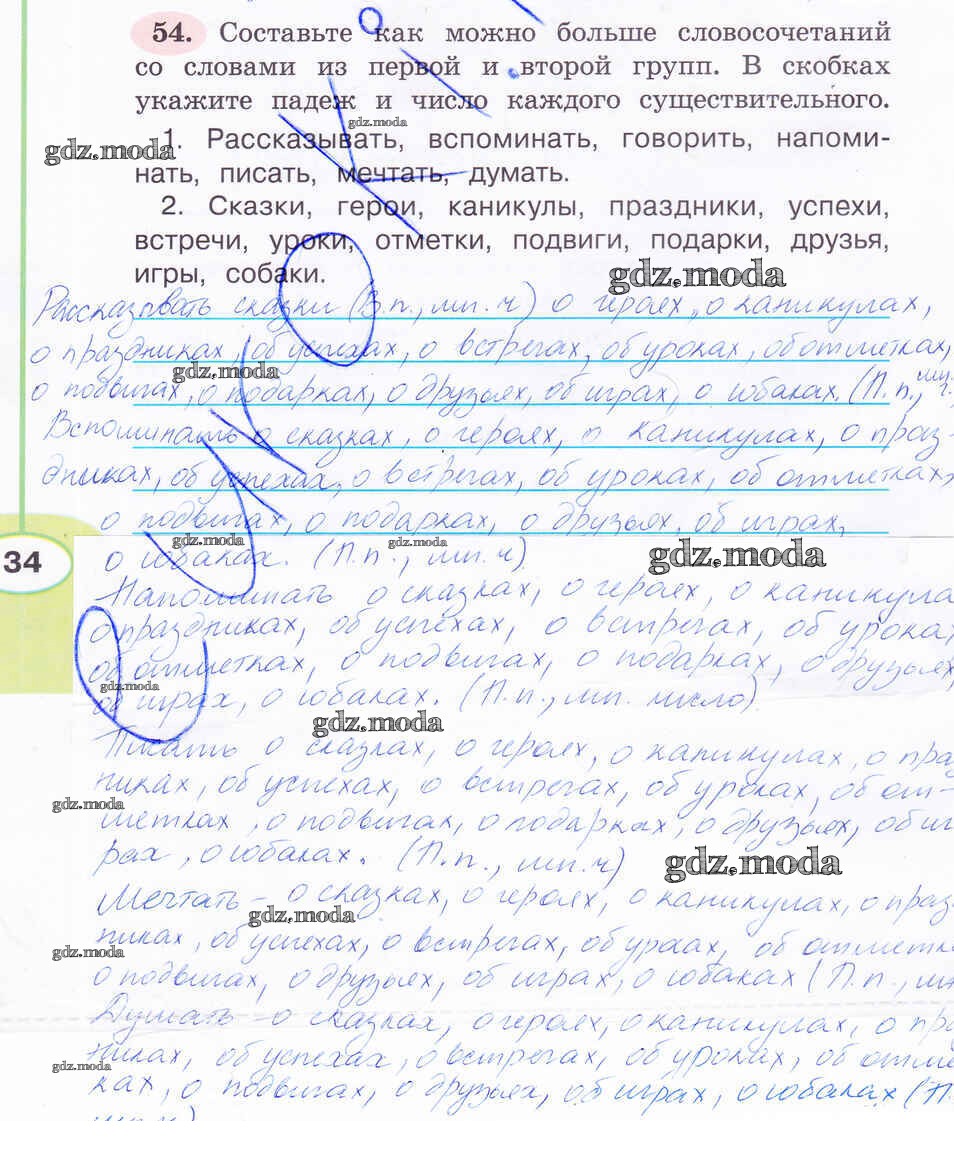 54. Составьте как можно больше словосочетаний
со словами из первой и второй групп. В скобках
укажите падеж и число каждого существительного.
gdz.moda
gdz.moda
1. Рассказывать, вспоминать, говорить, напоми-
нать, писать, мечтать, думать.
2. Сказки, герои, каникулы, праздники, успехи,
встречи, уроки, отметки, подвиги, подарки, друзья,
игры, собаки.
gdz.moda
Рассказывать сказки (В.п., мн.ч) о героях, о каникулах,
о праздниках, об успехах, о встречах, об уроках, об отметках,
gdz.moda
о подвигах, о подарках, о друзьях, об играх, о собаках. (П.п., мн.
Вспоминать о сказках, о героях, о каникулах, о праз-
дниках, об успехах, о встречах, об уроках, об отметках,
о подвигах, о подарках, о друзьях, об играх,
gdz.moda
gdz.moda
gdz.moda
34
о собаках. (П.п., мн.ч)
Напоминать о сказках, о героях, о каникула
о праздниках, об успехах, о встречах, об уроках
об отметках, о подвигах, о подарках, о друзьях,
gdz.moda
об играх, о собаках. (П.п., мн. число).
gdz.moda
Писать о сказках, о героях, о каникулах, о пра
никах, об успехах, о встречах, об уроках, об от-
gdz.moda
метках, о подвигах, о подарках, о друзьях, об иг
рах, о собаках. (П.п., мн.ч)
gdz.moda
Мечтать - о сказках, о героях, о каникулах, о праз
gdz.moda
никах, об успехах, о встречах, об уроках, об отметк
gdz.moda
о подвигах, о друзьях, об играх, о собаках (П.п., мн
Думать - о сказках, о героях, о каникулах, о пра
никах, об успехах, о встречах, об уроках, об отме
gdz.moda
ках, о подвигах, о друзьях, об играх, о собаках (П.
мн.ч)